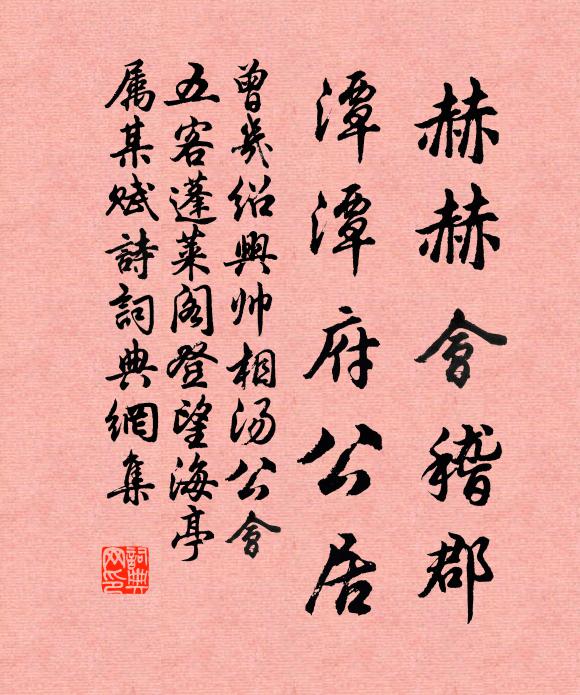 赫赫會稽郡
潭潭府公居
曾幾紹興帅相汤公會
五客蓬萊阁登望海亭
属某赋詩詞典網集
詞典网印